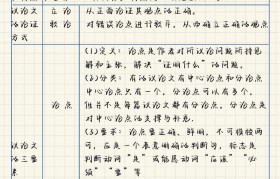 议论文 立论 从正面论证其观点的正确。
的论证 驳论 对错误论点进行驳斥，从而确立正确的观点
方式
(1)定义：论点是作者对所议论问题所持见
解和主张，解决“证明什么”的问题。
(2)分类：有的议论文有中心论点和分论点
中心论点只有一个，分论点可以有多个，
但并不是每篇议论文都有分论点，分论点是
论点 对中心论点的支撑与补充。
议论文 (3)要求：论点要正确、鲜明，不可模棱两
的三要 可，应是一个表意明确的判断句，标志是
素 判断动词“是”或能愿动词“应该”“必
须”“要”等